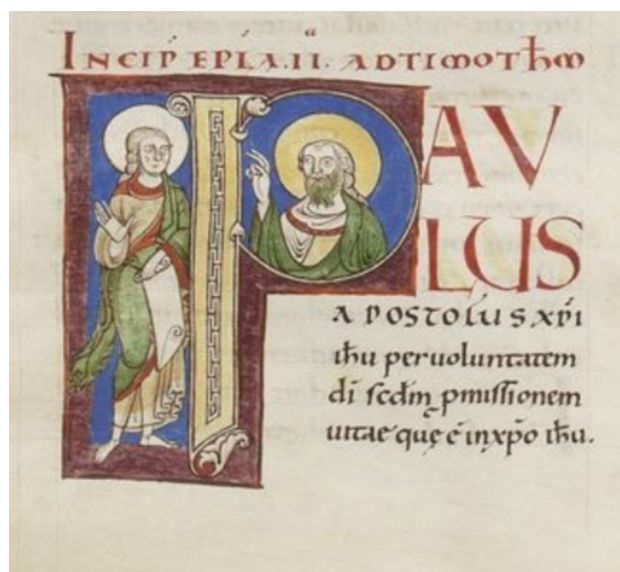 INCIP̄ EPĹA.II.ª AD TIMOTħM
PAV
LUS
APOSTOLUS XP̄I
iħu per uoluntatem
dī scđm ꝓmissionem
uitae quę ē in xp̄o iħu.